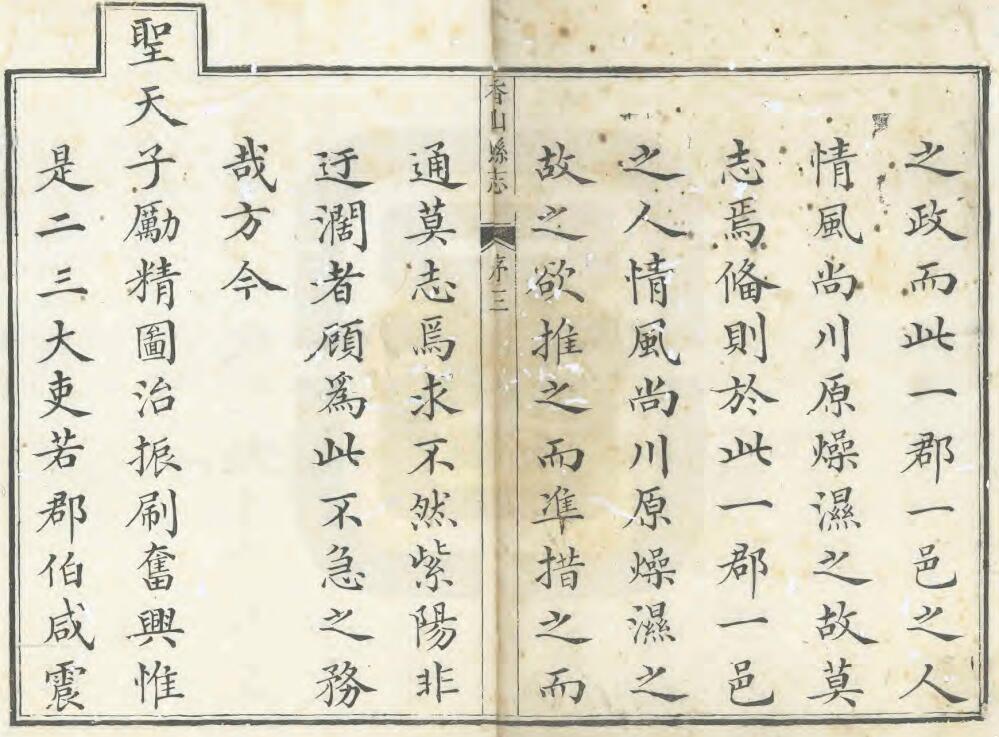 之政而此一郡一邑之人
情風尚川原燥濕之故莫
志焉俻則於此一郡一邑
之人情風尚川原燥濕之
故之欲推之而準措之而
香山縣志 序三
通莫志焉求不然紫陽非
迂濶者顧爲此不急之務
哉方今
聖天子勵精圖治振刷奮興惟
是二三大吏若郡伯咸震